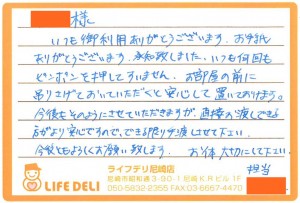 様
いつも御利用ありがとうございます。お手紙
ありがとうございます。承知致しました。いつも何回も
ピンポンを押してすいません。お部屋の前に
吊り下げておいていただくと安心して置いておけます。
今後もそのようにさせていただきますが、直接お渡しできる
方がより安心ですので、できる限りお渡しさせて下さい。
今後ともよろしくお願い致します。 お体大切にして下さい。
ライフデリ尼崎店 担当
尼崎市昭和通3-90-1尼崎KRビル1F
LIFE DELI 050-5832-2355 FAX:03-6667-4470